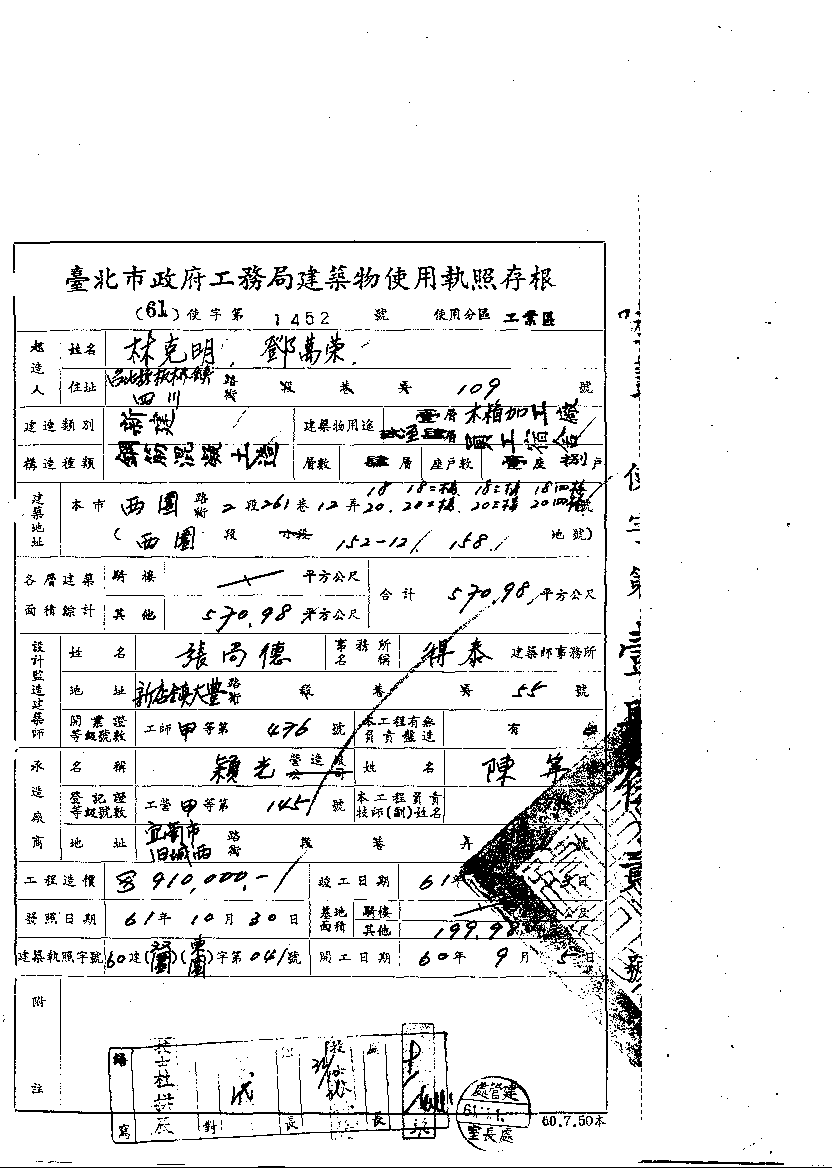 臺北市政府工務局建築物使用執照存根
(61)使字第 1452 號 使用分區 工業區
起造人 姓名 林克明、鄧萬荣
住址 台北縣板橋鎮四川路街 段 巷 弄 109 號
建造類別 新建 建築物用途 壹層木箱加工廠 貳至肆層員工宿舍
構造種類 鋼筋混凝土造 層數 肆層 座戶數 壹座捌戶
建築地址 本市 西園路街 2段261巷12弄 18 18二樓 18三樓 18四樓
20. 20二樓. 20三樓 20四樓 號
(西園 段 小段 152-12, 158, 地號)
各層建築面積綜計 騎樓 平方公尺 合計 570.98 平方公尺
其他 570.98 平方公尺
設計監造建築師 姓名 張尚德 事務所名稱 得泰 建築師事務所
地址 新店鎮大豐路街 段 巷 弄 55 號
開業證等級號數 工師甲等第 476 號 本工程有無負責監造 有 無
承造廠商 名稱 穎光 營造廠公司 姓名 陳
登記證等級號數 工營甲等第 145 號 本工程負責技師(副)姓名
地址 宜蘭市旧城西路街 段 巷 弄 號
工程造價 910,000.- 竣工日期 61年 日
發照日期 61年10月30日 基地面積 騎樓 公尺
其他 199.98 尺
建築執照字號 60建( )( )字第041號 開工日期 60年9月5日
附註
繕寫 對 長 長
建管處
61.11.
處長室
60.7.50本
使字第壹
號